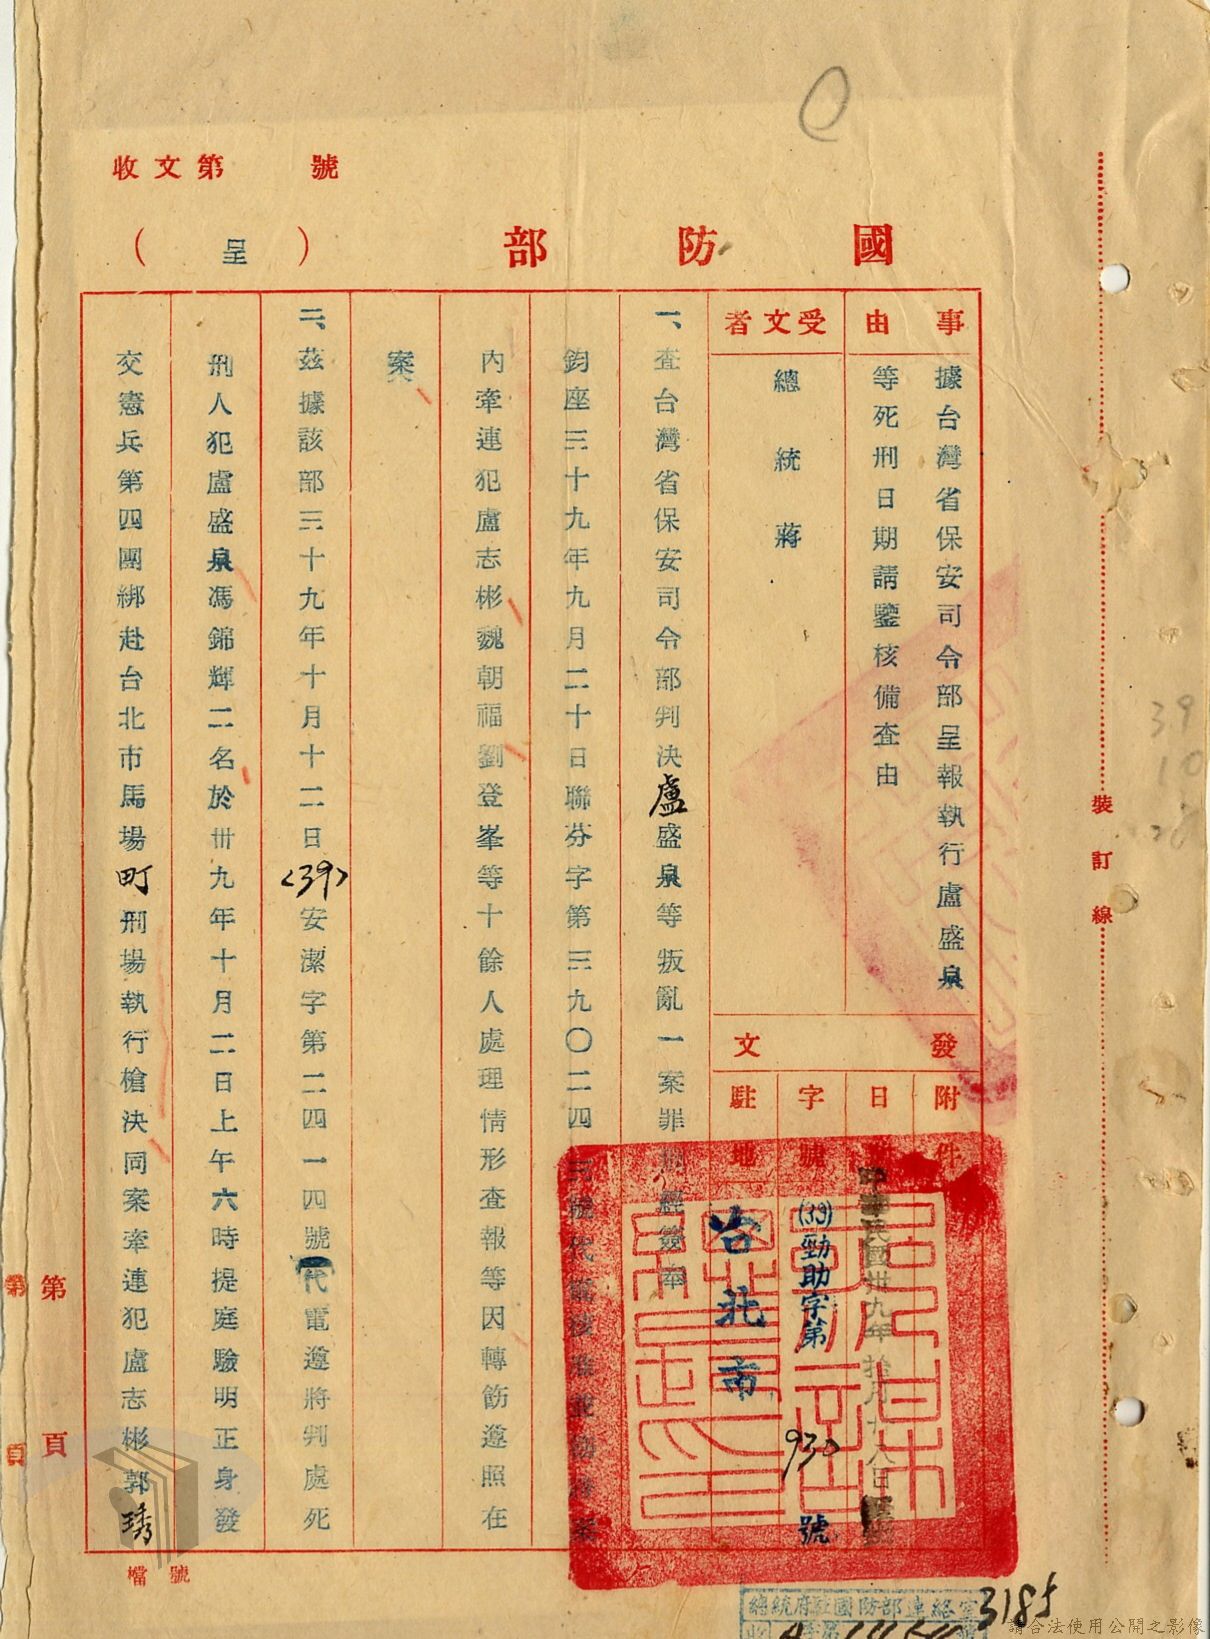 收文第　號
國防部
（呈）
事由
據台灣省保安司令部呈報執行盧盛泉
等死刑日期請鑒核備查由
受文者
總統蔣
發文
附件
日
中華民國卅九年拾月十八日
字號
(39)勁助字第930號
駐地
台北市
一、查台灣省保安司令部判決盧盛泉等叛亂一案罪簽奉
鈞座三十九年九月二十日聯芬字第三九〇二四三號代電核准並飭將案
內牽連犯盧志彬魏朝福劉登峯等十餘人處理情形查報等因轉飭遵照在
案
二、茲據該部三十九年十月十二日<39>安潔字第二四一四號代電遵將判處死
刑人犯盧盛泉馮錦輝二名於卅九年十月二日上午六時提庭驗明正身發
交憲兵第四團綁赴台北市馬場町刑場執行槍決同案牽連犯盧志彬郭琇
裝訂線
第　頁
第　頁
檔號
39
10
總統府駐國防部連絡室
收
號
請合法使用公開之影像